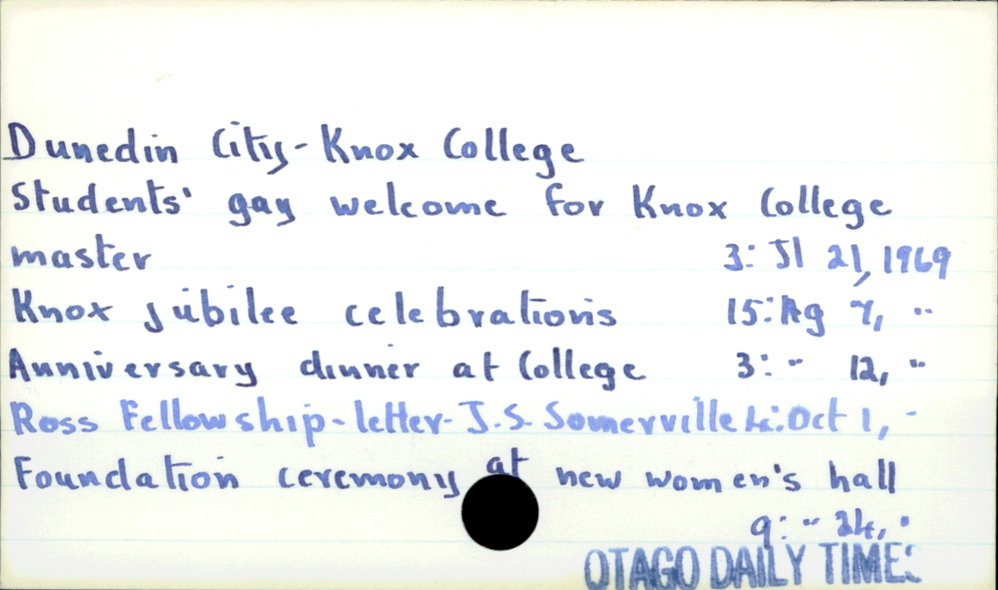 Dunedin City - Knox College
Students' gay welcome for Knox College
master 3: Jl 21, 1969
Knox jubilee celebrations 15: Ag 7, "
Anniversary dinner at College 3: " 12, "
Ross Fellowship - letter - J.S. Somerville 4: Oct 1, "
Foundation ceremony at new women's hall
9: " 24, "
OTAGO DAILY TIMES